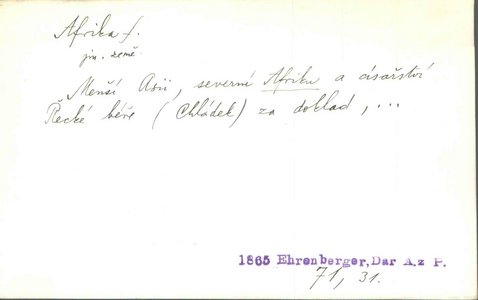 Afrika f.
jm. země.
Menší Asii, severní Afriku a císařství
Řecké béře (Chládek) za doklad, ...
1865 Ehrenberger, Dar A.z P.
71, 31.